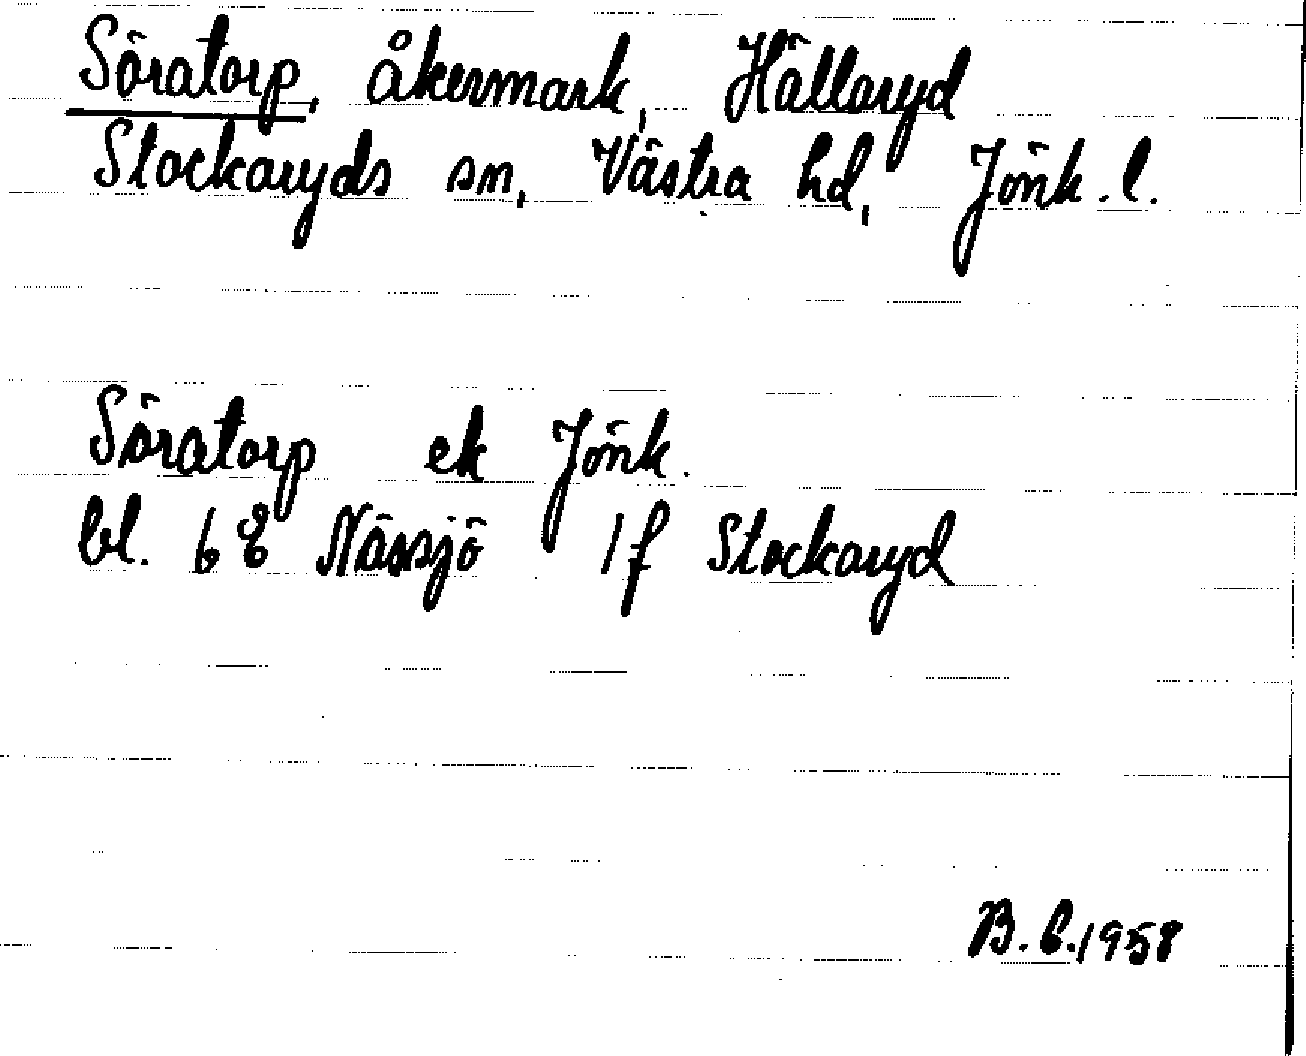 Söratorp, åkermark, Hällaryd
Stockaryds sn, Västra hd, Jönk.l.
Söratorp ek Jönk.
bl. 6E Nässjö 1f Stockaryd
B.E.1958